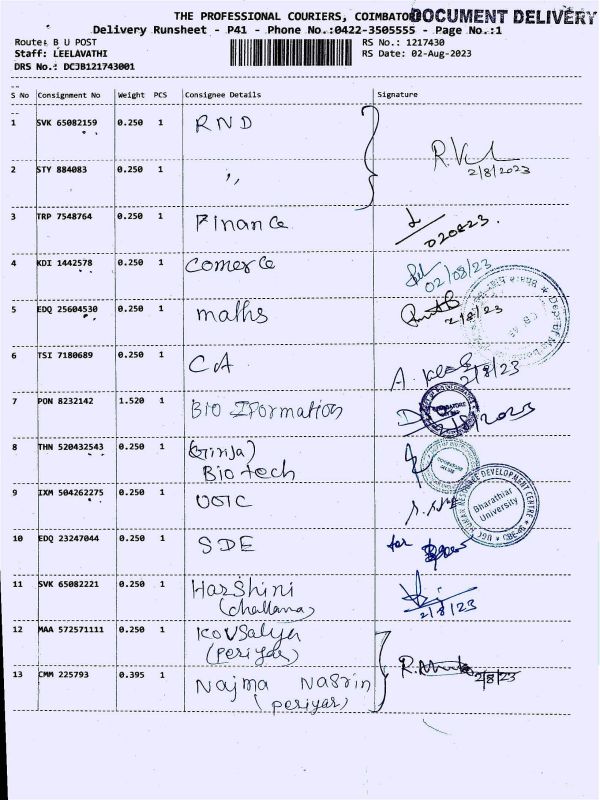 THE PROFESSIONAL COURIERS, COIMBATO
DOCUMENT DELIVERY
Delivery Runsheet - P41 - Phone No.:0422-3505555 - Page No.:1
Route: B U POST RS No.: 1217430
Staff: LEELAVATHI RS Date: 02-Aug-2023
DRS No.: DCJB121743001
S No Consignment No Weight PCS Consignee Details Signature
1 SVK 65082159 0.250 1 RND
R.V
2/8/2023
2 STY 884083 0.250 1 ,,
3 TRP 7548764 0.250 1 Finance
020823
4 KDI 1442578 0.250 1 Comerce
02/08/23
5 EDQ 25604530 0.250 1 maths
2/8/23
6 TSI 7180689 0.250 1 CA
A. 2/8/23
7 PON 8232142 1.520 1 BIO IFormation
2/8/2023
8 THN 520432543 0.250 1 (Girija)
Bio tech
9 IXM 504262275 0.250 1 UGC
HUMAN RESOURCE DEVELOPMENT CENTRE
Bharathiar
University
UGC CBE-46
10 EDQ 23247044 0.250 1 SDE for
11 SVK 65082221 0.250 1 Harshini
(challana)
2/8/23
12 MAA 572571111 0.250 1 Kovsalya
(periyar)
13 CMM 225793 0.395 1 Najma Nasrin
(periyar)
R. 2/8/23